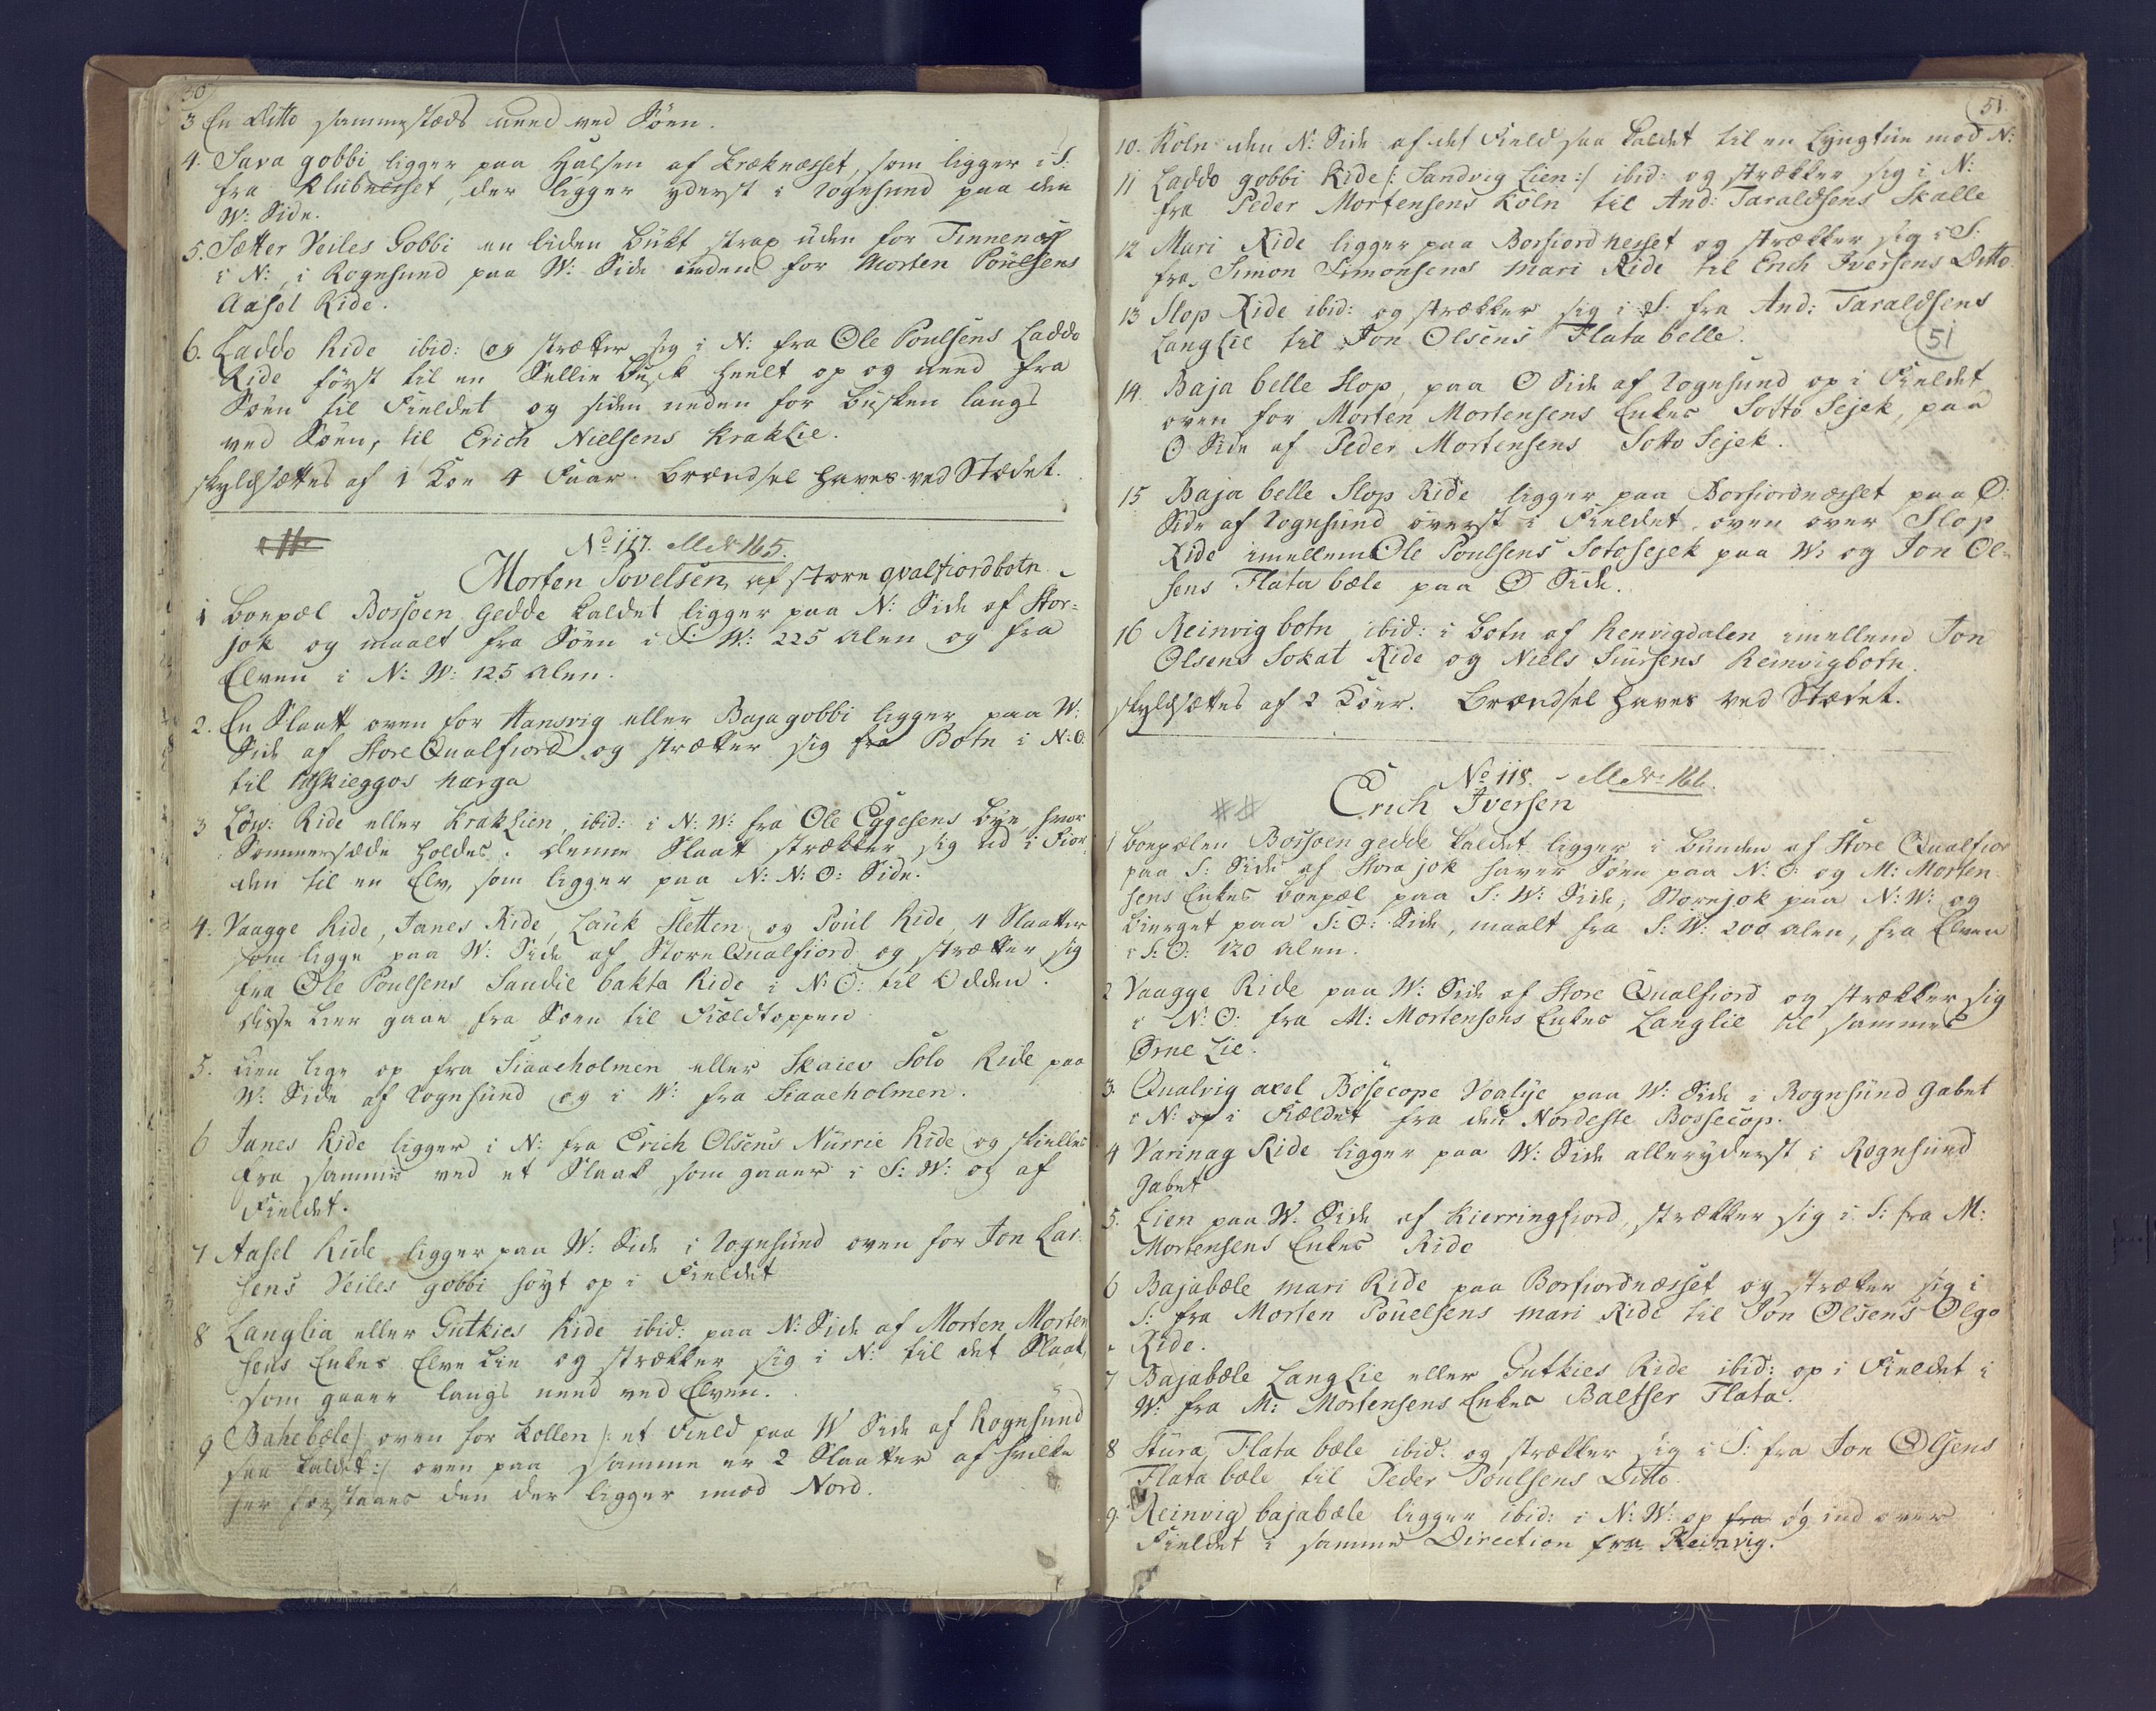 50
3 En Ditto sammestæds need ved Söen.
4. Sava gobbi ligger paa Halsen af Kræknæsset, som ligger i S:
fra Klubnesset, der ligger yderst i Rognsund paa den
W: Side.
5. Sætter Veiles Gobbi en liden Bukt strax uden for Finnenæss
i N: i Rognsund paa W: Side inden for Morten Povelsens
Aasel Ride.
6. Laddo Ride ibid: og strækker sig i N: fra Ole Poulsens Laddo
Ride först til en Sellie Busk heelt op og need fra
Söen til Fieldet og siden neden for busken langs
ved Söen, til Erich Nielsens KrakLie.
skyldsættes af 1 Koe 4 Faar. Brændsel haves ved Stædet.
No 117. MNo 165.
Morten Povelsen af store qvalfiordbotn
1 Boepæl Bossoen Gedde kaldet ligger paa N: Side af Stor-
jok og maalt fra Söen i S: W: 225 Alen og fra
Elven i N: W: 125 Alen.
2. En Slaatt oven for Hansvig eller Bajagobbi ligger paa W:
Side af Store Qualfiord og strækker sig fra Botn i N:O:
til Uskieggos narga
3 Löv: Ride eller KrakLien ibid: i N: W: fra Ole Eggesens Bye, hvor
Sommersæde holdes. Denne Slaatt strækker sig ud i Fior-
den til en Elv, som ligger paa N: N: O: Side.
4. Vaagge Ride, Janes Ride, Lauk Sletten og Poul Ride, 4 Slaatter
som ligge paa W: Side af Store Qualfiord og strækker sig
fra Ole Poulsens Saudie bakta Ride i N: O: til Odden.
disse Lier gaae fra Söen til Fieldtoppen
5. Lien lige op fra Siaaeholmen eller Skaiev Solo Ride paa
W: Side af Rognsund og i W: fra Siaaeholmen.
6 Janes Ride ligger i N: fra Erich Olsens Nurrie Ride og skilles
fra samme ved et Slaak som gaaer i S: W: og af
Fieldet.
7 Aasel Ride ligger paa W: Side i Rognsund oven for Jon Lar-
sens Veiles gobbi höyt op i Fieldet
8 Langlia eller Gutkies Ride ibid: paa N: Side af Morten Morten
sens Enkes Elve Lie og strækker sig i N: til det Slaak,
som gaaer langs need ved Elven.
9 Bahebæle /: oven for Kollen /: et Field paa W Side af Rognsund
saa kaldet :/ oven paa samme er 2 Slaatter af hvilke
her forstaaes den der ligger imod Nord.
51.
10. Köln den N: Side af det Field saa kaldet til en Lyngtue mod N:
11 Laddo gobbi Ride /: Sandvig Lien :/ ibid: og strækker sig i N:
fra Peder Mortensens Köln til And: Taraldsens Skalle
12 Mari Ride ligger paa Borfiordnesset og strækker sig i S:
fra Simon Simonsens Mari Ride til Erich Iversens Ditto
13 Slop Ride ibid: og strækker sig i S: fra And: Taraldsens
LangLie til Jon Olsens Flata belle.
51
14. Baja belle Slop, paa O Side af Rognsund op i Fieldet
oven for Morten Mortensens Enkes Sotto Sejek, paa
O Side af Peder Mortensens Sotto Sejek.
15 Baja belle Slop Ride ligger paa Borfiordnæsset paa O:
Side af Rognsund överst i Fieldet oven over Slop
Ride imellem Ole Poulsens Sotosejek paa W: og Jon Ol-
sens Flata bæle paa O Side.
16 Reinvig botn ibid: i Botn af Renvigdalen imellem Jon
Olsens Sokat Ride og Niels Siursens Reinvigbotn.
skyldsættes af 2 Köer. Brændsel haves ved Stædet.
No 118. MNo 166.
Erich Iversen
1 Boepælen Bossoen gedde kaldet ligger i Bunden af Store Qualfior
paa S: Side af Storajok haver Söen paa N: O: og M: Morten-
sens Enkes Boepæl paa S: W: Side, Storejok paa N: W: og
Bierget paa S: O: Side, maalt fra S: W: 200 Alen, fra Elven
i S: O: 120 Alen.
2 Vaagge Ride paa W: Side af Store Qualfiord og strækker sig
i N: O: fra M: Mortensens Enkes Langlie til sammes
Örne Lie.
3. Qualvig axel Bösecope Voalye paa W: Side i Rognsund Gabet
i N: op i Fieldet fra den Nordeste Bossecop.
4 Varinag Ride ligger paa W: Side allerÿderst i Rognsund
Gabet
5. Lien paa W: Side af Kierringfiord, strækker sig i S: fra M:
Mortensens Enkes Ride
6 Bajabæle mari Ride paa Borfiordnæsset og strækker sig i
S: fra Morten Pouelsens mari Ride til Jon Olsens Olgo
Ride.
7 Bajabæle LangLie eller Gutkies Ride ibid: op i Fieldet i
W: fra M: Mortensens Enkes Baeltser Flata.
8 Stura, Flata bæle ibid: og strækker sig i S: fra Jon Olsens
Flata bæle til Peder Poulsens Ditto.
9. Reinvig bajabæle ligger ibid: i N: W: op fra og ind over
Fieldet i samme Direction fra Reinvig.